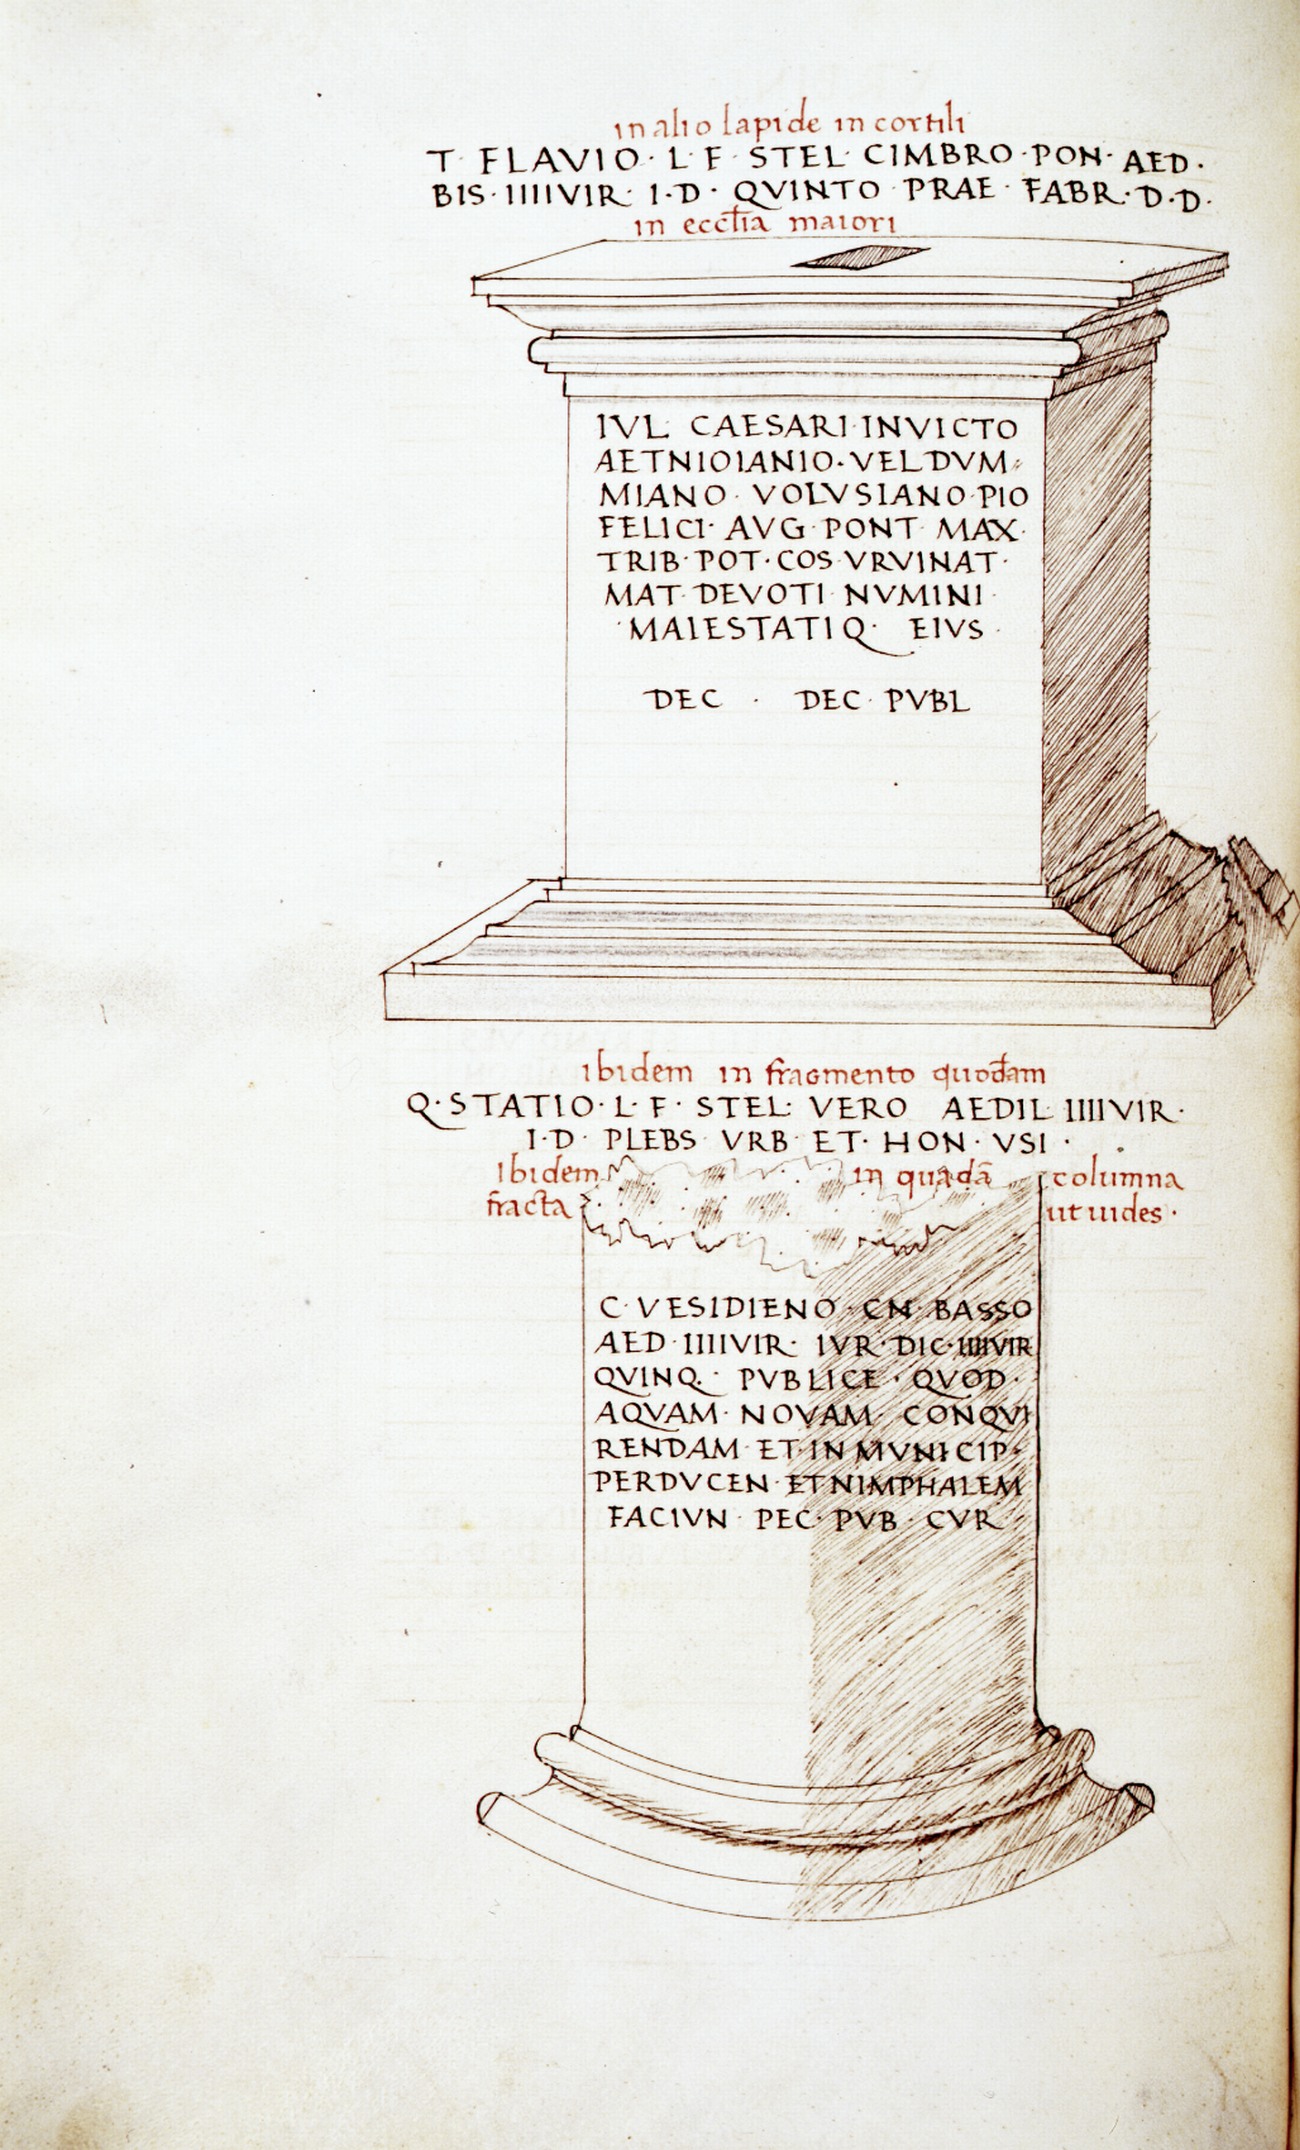 in alio lapide in cortili
T· FLAVIO · L · F · STEL · CIMBRO · PON · AED ·
BIS · IIIIVIR · I · D · QVINTO · PRAE · FABR · D · D ·
in ecclia maiori
IVL · CAESARI · INVICTO
AETNIOIANIO · VELDVM
MIANO · VOLVSIANO · PIO
FELICI · AVG · PONT · MAX ·
TRIB · POT · COS · VRVINAT ·
MAT · DEVOTI · NVMINI ·
· MAIESTATIQ · EIVS ·
DEC · DEC · PVBL
ibidem in fragmento quodam
Q · STATIO · L · F · STEL · VERO AEDIL IIIIVIR ·
I · D · PLEBS · VRB · ET · HON · VSI ·
Ibidem in quadā columna
fracta ut uides ·
C · VESIDIENO · CN · BASSO
AED · IIIIVIR · IVR · DIC · IIIIVIR
QVINQ · PVBLICE · QVOD ·
AQVAM · NOVAM · CONQVI
RENDAM · ET · IN MVNICIP ·
PERDVCEN · ET NIMPHALEM
FACIVN · PEC · PVB · CVR ·